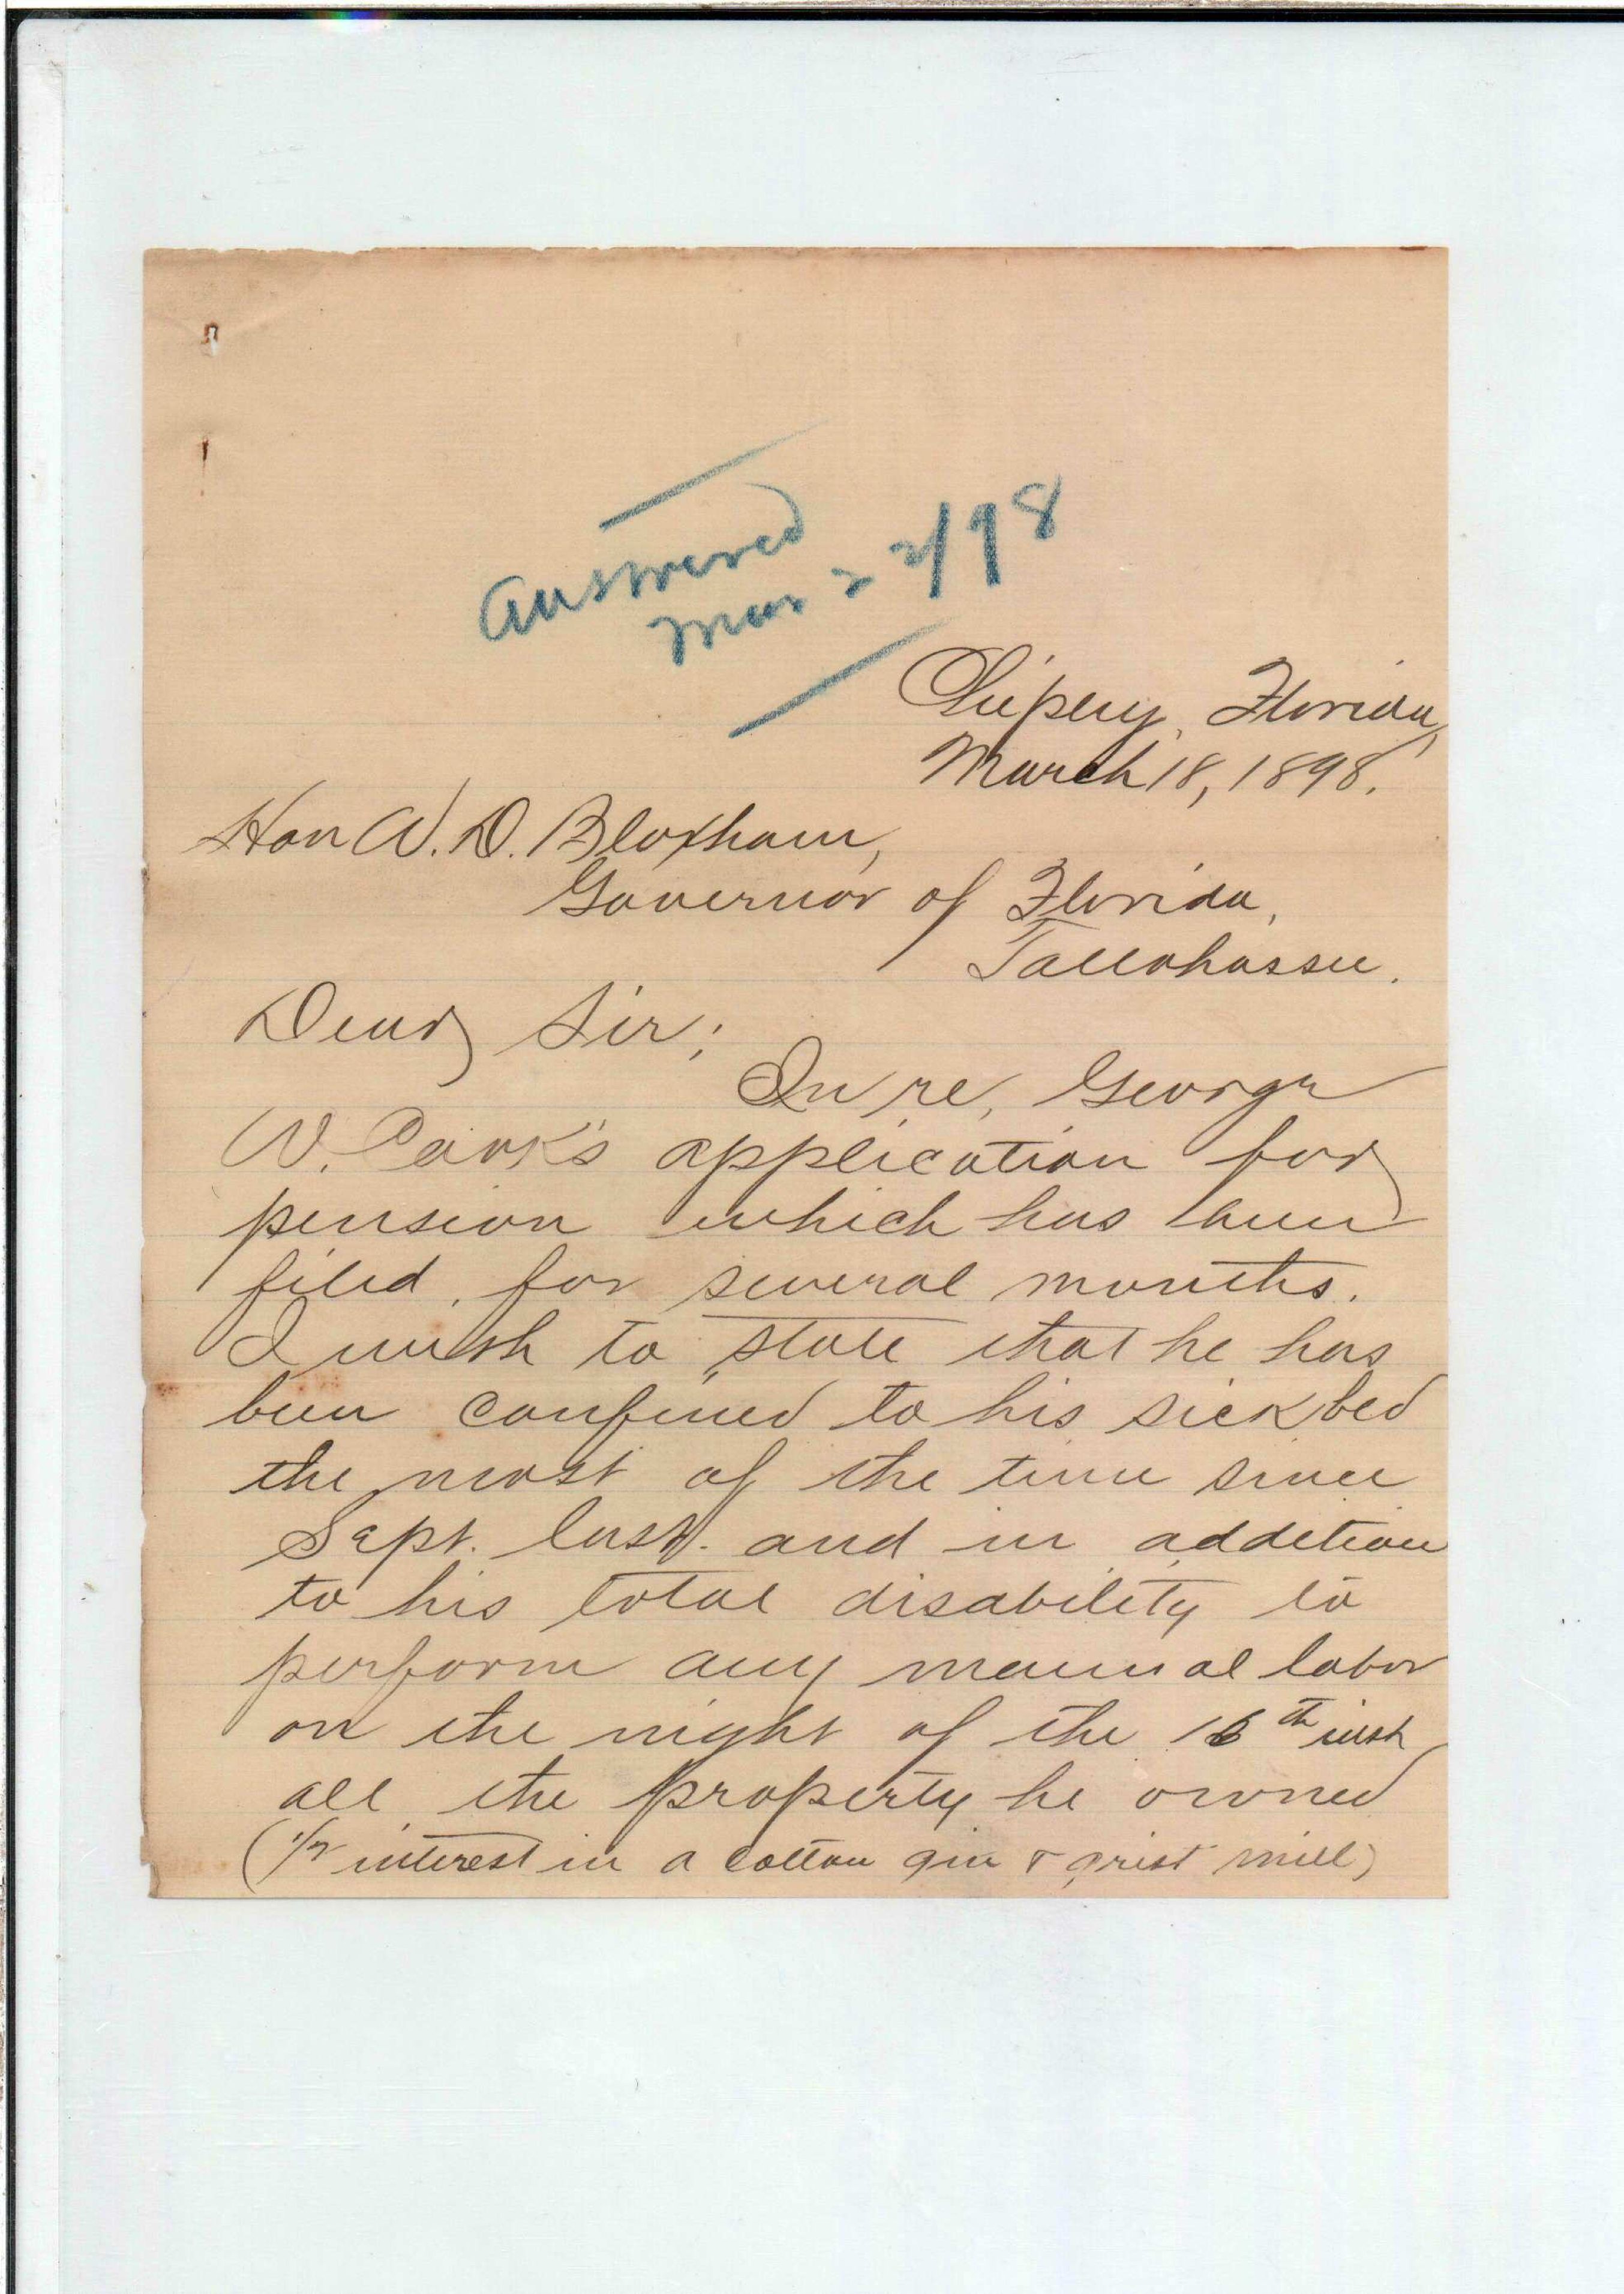 Answered
Mar 22/98
Chipley, Florida,
March 18, 1898.
Hon W. D. Bloxham,
Governor of Florida,
Tallahassee.
Dear Sir;
In re, George
W. Park's application for
pension which has been
filed, for several months.
I wish to state that he has
been confined to his sick bed
the most of the time since
Sept. last. and in addition
to his total disability to
perform any manual labor
on the night of the 16th inst
all the property he owned
(1/2 interest in a cotton gin & grist mill)